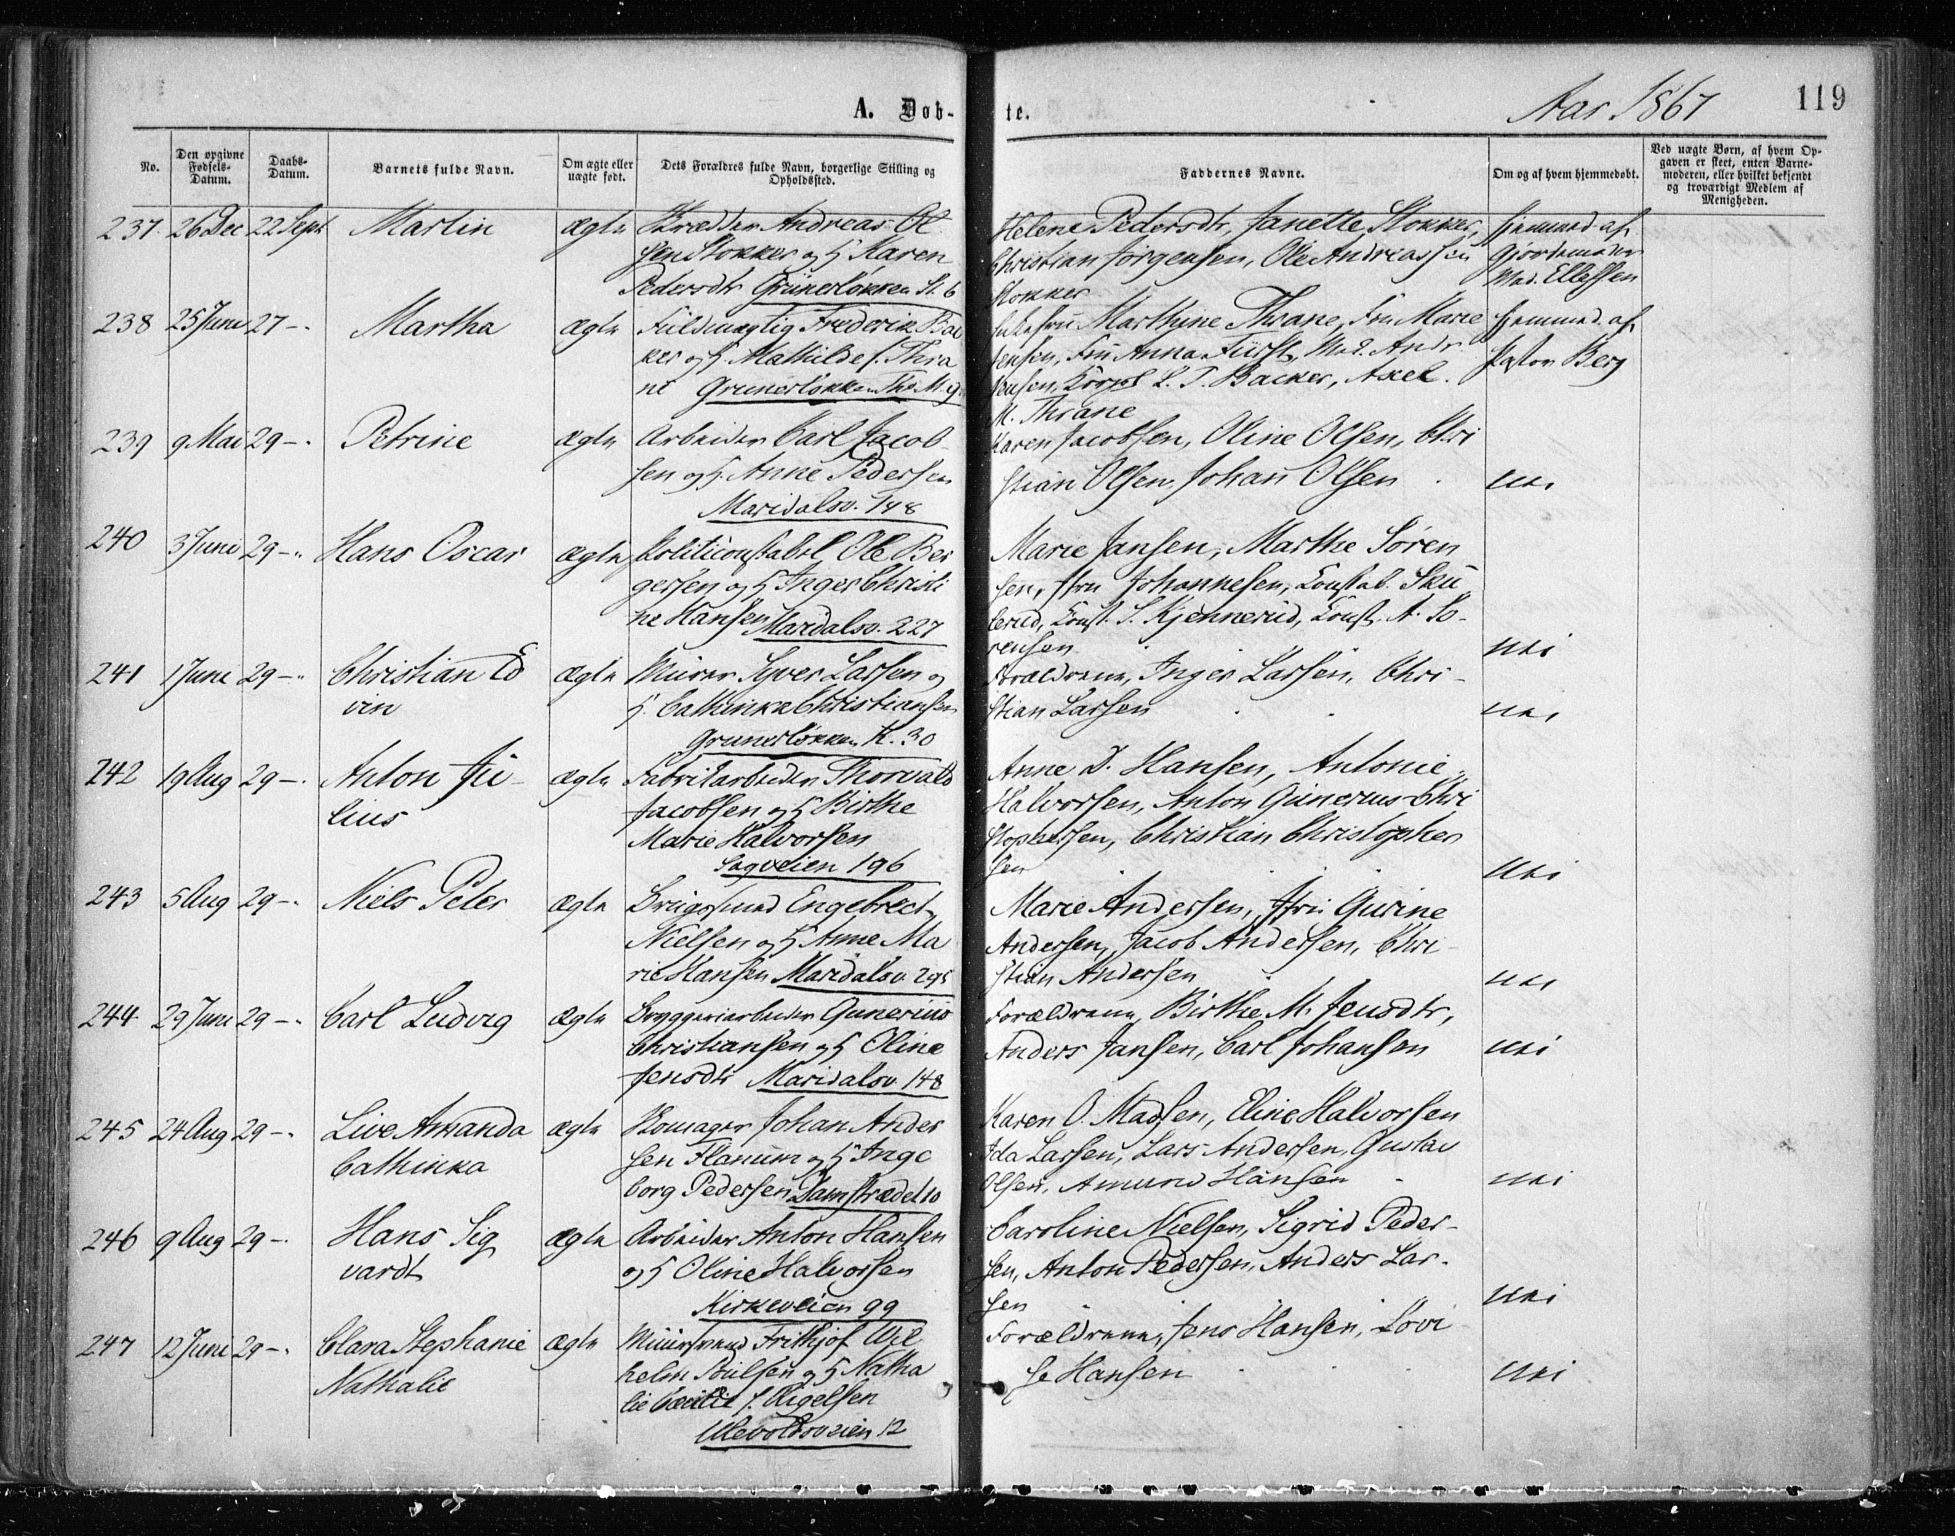 A. Døb-
te.
Aar 1867
119
No.
Den opgivne Fødsels-Datum.
Daabs-Datum.
Barnets fulde Navn.
Om ægte eller uægte født.
Dets Forældres fulde Navn, borgerlige Stilling og Opholdssted.
Faddernes Navne.
Om og af hvem hjemmedøbt.
Ved uægte Børn, af hvem Op-
gaven er skeet, enten Barne-
moderen, eller hvilket bekjendt
og troværdigt Medlem af
Menigheden.
237. 26 Dec 22 Sept Martin ægte Skrædder Andreas Ol
sen Stokker og H Karen
Pedersdtr Grünerløkken St. 6
Helene Pedersdtr, Janette Stokker,
Christian Jørgensen, Ole Andreassen
Stokker
Hjemmed. af
Gjordemoder
Mad. Ellefsen
238 25 Juni 27 -. Martha ægte Fuldmægtig Frederik Bac
ker og H. Mathilde f. Thra
ne Grunerløkken Th. M. 9
Marthine Thrane, Fru Marie
Jensen, Fru Anna Fürst, Mad. Andr
Jensen, L. T. Backer, Axel
M. Thrane
Hjemmed. af
Pastor Berg
239 9 Mai 29 -. Petrine ægte Arbeider Carl Jacob
sen og H. Anne Pedersen
Maridalsv. 148
Karen Jacobsen, Oline Olsen, Chri
stian Olsen, Johan Olsen
Nei
240 3 Juni 29 -. Hans Oscar ægte Politiconstabel Ole Ber
gersen og H Inger Christi
ne Hansen Maridalsv. 227
Marie Jansen, Marthe Søren
sen, Jfru Johannesen, Constab. Sku
lerud, Const. S. Kjennerud, Const. A. Sø-
rensen
Nei
241 1 Juni 29 -. Christian Ed
vin ægte Murer Syver Larsen og
H. Cathinka Christiansen
Grunerløkken K. 30
Forældrene, Inger Larsen, Chri-
stian Larsen
Nei
242 19 Aug 29 -. Anton Ju-
lius ægte Fabrikarbeider Thorvald
Jacobsen og H Birthe
Marie Halvorsen
Sagveien 196
Anne D. Hansen, Antonie
Halvorsen, Anton Gunerius Chri
stophersen, Christian Christopher
sen
Nei
243 5 Aug 29 -. Niels Peter ægte Brugsmand Engebret
Nielsen og H Anne Ma
rie Hansen Maridalsv. 295
Marie Andersen, Jfru Gurine
Andersen, Jacob Andersen, Chri-
stian Andersen
Nei
244. 29 Juni 29 -. Carl Ludvig ægte Bryggeriarbeider Gunerius
Christiansen og H Oline
Jensdtr Maridalsv. 148
Forældrene, Birthe M. Jensdtr,
Anders Jansen, Carl Johansen
Nei
245 24 Aug 29 -. Live Amanda
Cathinka ægte Skomager Johan Ander
sen Flanum og H Inge
borg Pedersen Damstrædet 10
Karen O. Madsen, Eline Halvorsen
Ida Larsen, Lars Andersen, Gustav
Olsen, Amund Hansen
Nei
246 9 Aug 29 -. Hans Sig
vardt ægte Arbeider Anton Hansen
og H Oline Halvorsen
Kirkeveien 99
Caroline Nielsen, Sigrid Peder-
sen, Anton Pedersen, Anders Lar-
sen
Nei
247 12 Juni 29 -. Clara Stephanie
Nathalie ægte Muursvend Frithjof Wil
helm Poulsen og H Natha
lie Cecilie f. Rigelsen
Ullevoldsveien 12
Forældrene, Jens Hansen, Lovi
se Hansen
Nei